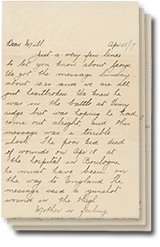 Dear Mell Apr 25/17
Just a very few lines
to let you know about George
We got the message Sunday
about 12.20 and we are all
just heartbroken. We knew he
was in the battle at Vimy
ridge but was hoping he had
come out alright but this
message was a terrible
shock. The poor kid died
of wounds on Apr 18 at
the hospital in Boulogne
he must have been on
the way to England. The
message said a gunshot
wound in the thigh
Mother is feeling